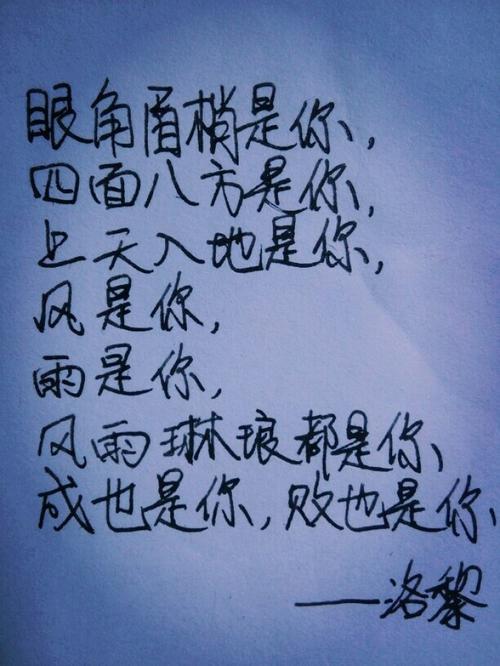 眼角眉梢是你,
四面八方是你,
上天入地是你,
风是你,
雨是你,
风雨琳琅都是你、
成也是你,败也是你、
——洛黎